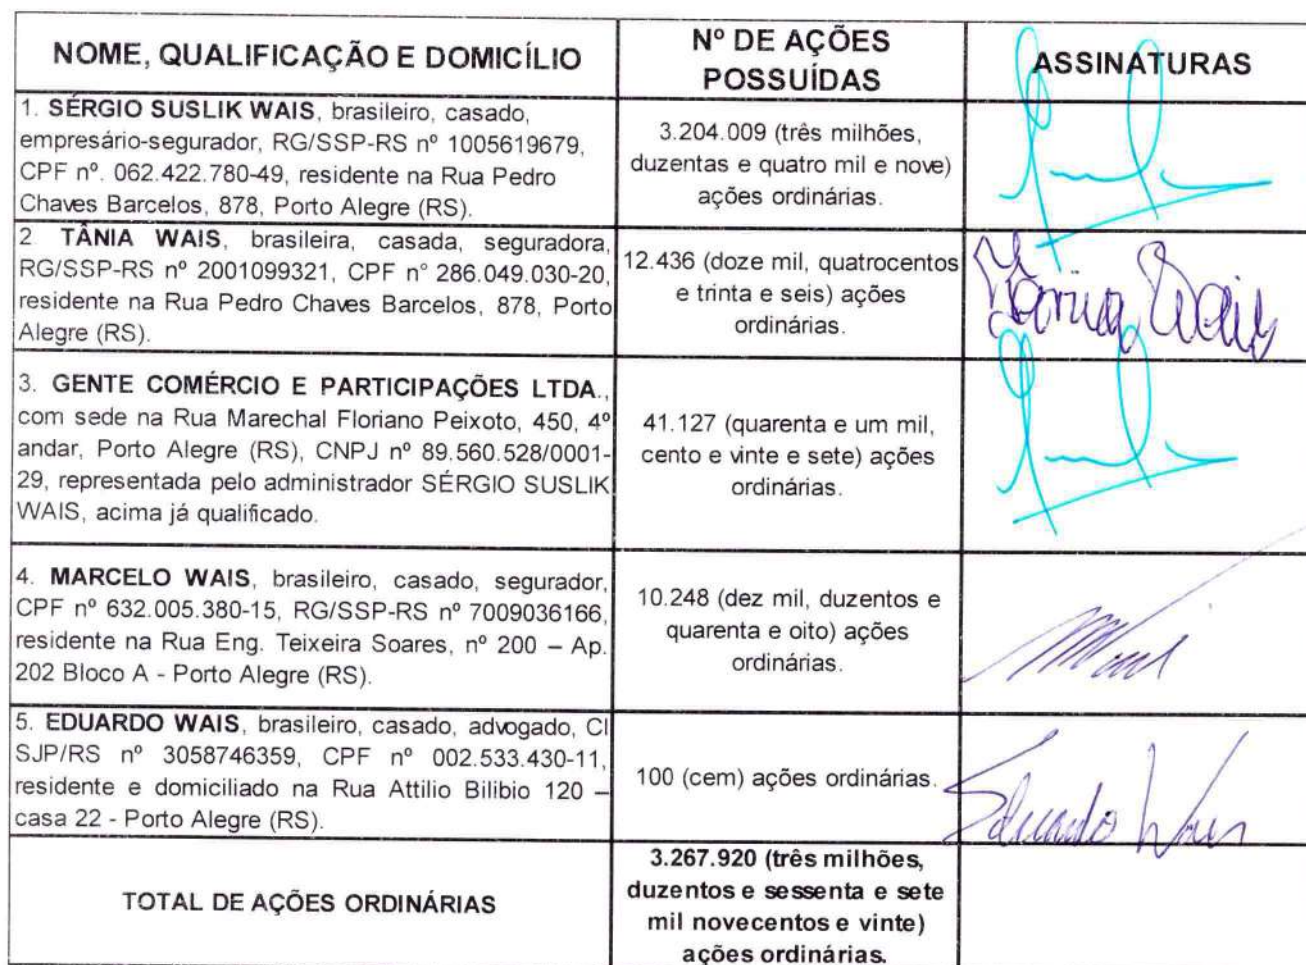 NOME, QUALIFICAÇÃO E DOMICÍLIO
Nº DE AÇÕES
POSSUÍDAS
ASSINATURAS
1. SÉRGIO SUSLIK WAIS, brasileiro, casado,
empresário-segurador, RG/SSP-RS nº 1005619679,
CPF nº. 062.422.780-49, residente na Rua Pedro
Chaves Barcelos, 878, Porto Alegre (RS).
3.204.009 (três milhões,
duzentas e quatro mil e nove)
ações ordinárias.
2 TÂNIA WAIS, brasileira, casada, seguradora,
RG/SSP-RS nº 2001099321, CPF n° 286.049.030-20,
residente na Rua Pedro Chaves Barcelos, 878, Porto
Alegre (RS).
12.436 (doze mil, quatrocentos
e trinta e seis) ações
ordinárias.
Tania Wais
3. GENTE COMÉRCIO E PARTICIPAÇÕES LTDA.,
com sede na Rua Marechal Floriano Peixoto, 450, 4º
andar, Porto Alegre (RS), CNPJ nº 89.560.528/0001-
29, representada pelo administrador SÉRGIO SUSLIK
WAIS, acima já qualificado.
41.127 (quarenta e um mil,
cento e vinte e sete) ações
ordinárias.
4. MARCELO WAIS, brasileiro, casado, segurador,
CPF nº 632.005.380-15, RG/SSP-RS nº 7009036166,
residente na Rua Eng. Teixeira Soares, nº 200 – Ap.
202 Bloco A - Porto Alegre (RS).
10.248 (dez mil, duzentos e
quarenta e oito) ações
ordinárias.
5. EDUARDO WAIS, brasileiro, casado, advogado, CI
SJP/RS nº 3058746359, CPF nº 002.533.430-11,
residente e domiciliado na Rua Attilio Bilibio 120 –
casa 22 - Porto Alegre (RS).
100 (cem) ações ordinárias.
Eduardo Wais
TOTAL DE AÇÕES ORDINÁRIAS
3.267.920 (três milhões,
duzentos e sessenta e sete
mil novecentos e vinte)
ações ordinárias.